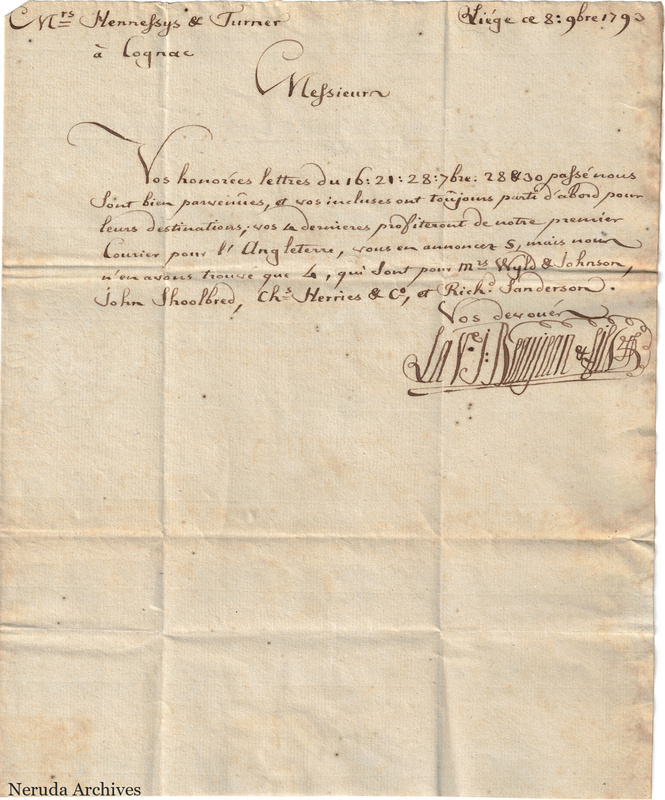 Mrs Hennessys & Turner
à Cognac
Liége ce 8: 9bre 1793
Messieurs
Vos honorées lettres du 16: 21: 28: 7bre: 28 & 30 passé nous
sont bien parvenües, et vos incluses ont toûjours parti d'abord pour
leurs destinations; vos 4 dernieres profiteront de notre premier
Courier pour l'Angleterre, vous en annoncez 5, mais nous
n'en avons trouvé que 4, qui sont pour Mrs Wyld & Johnson,
John Shoolbred, Chs Herries & Co, et Richd Sanderson.
Vos devoués
La Ve J: & fils
Neruda Archives